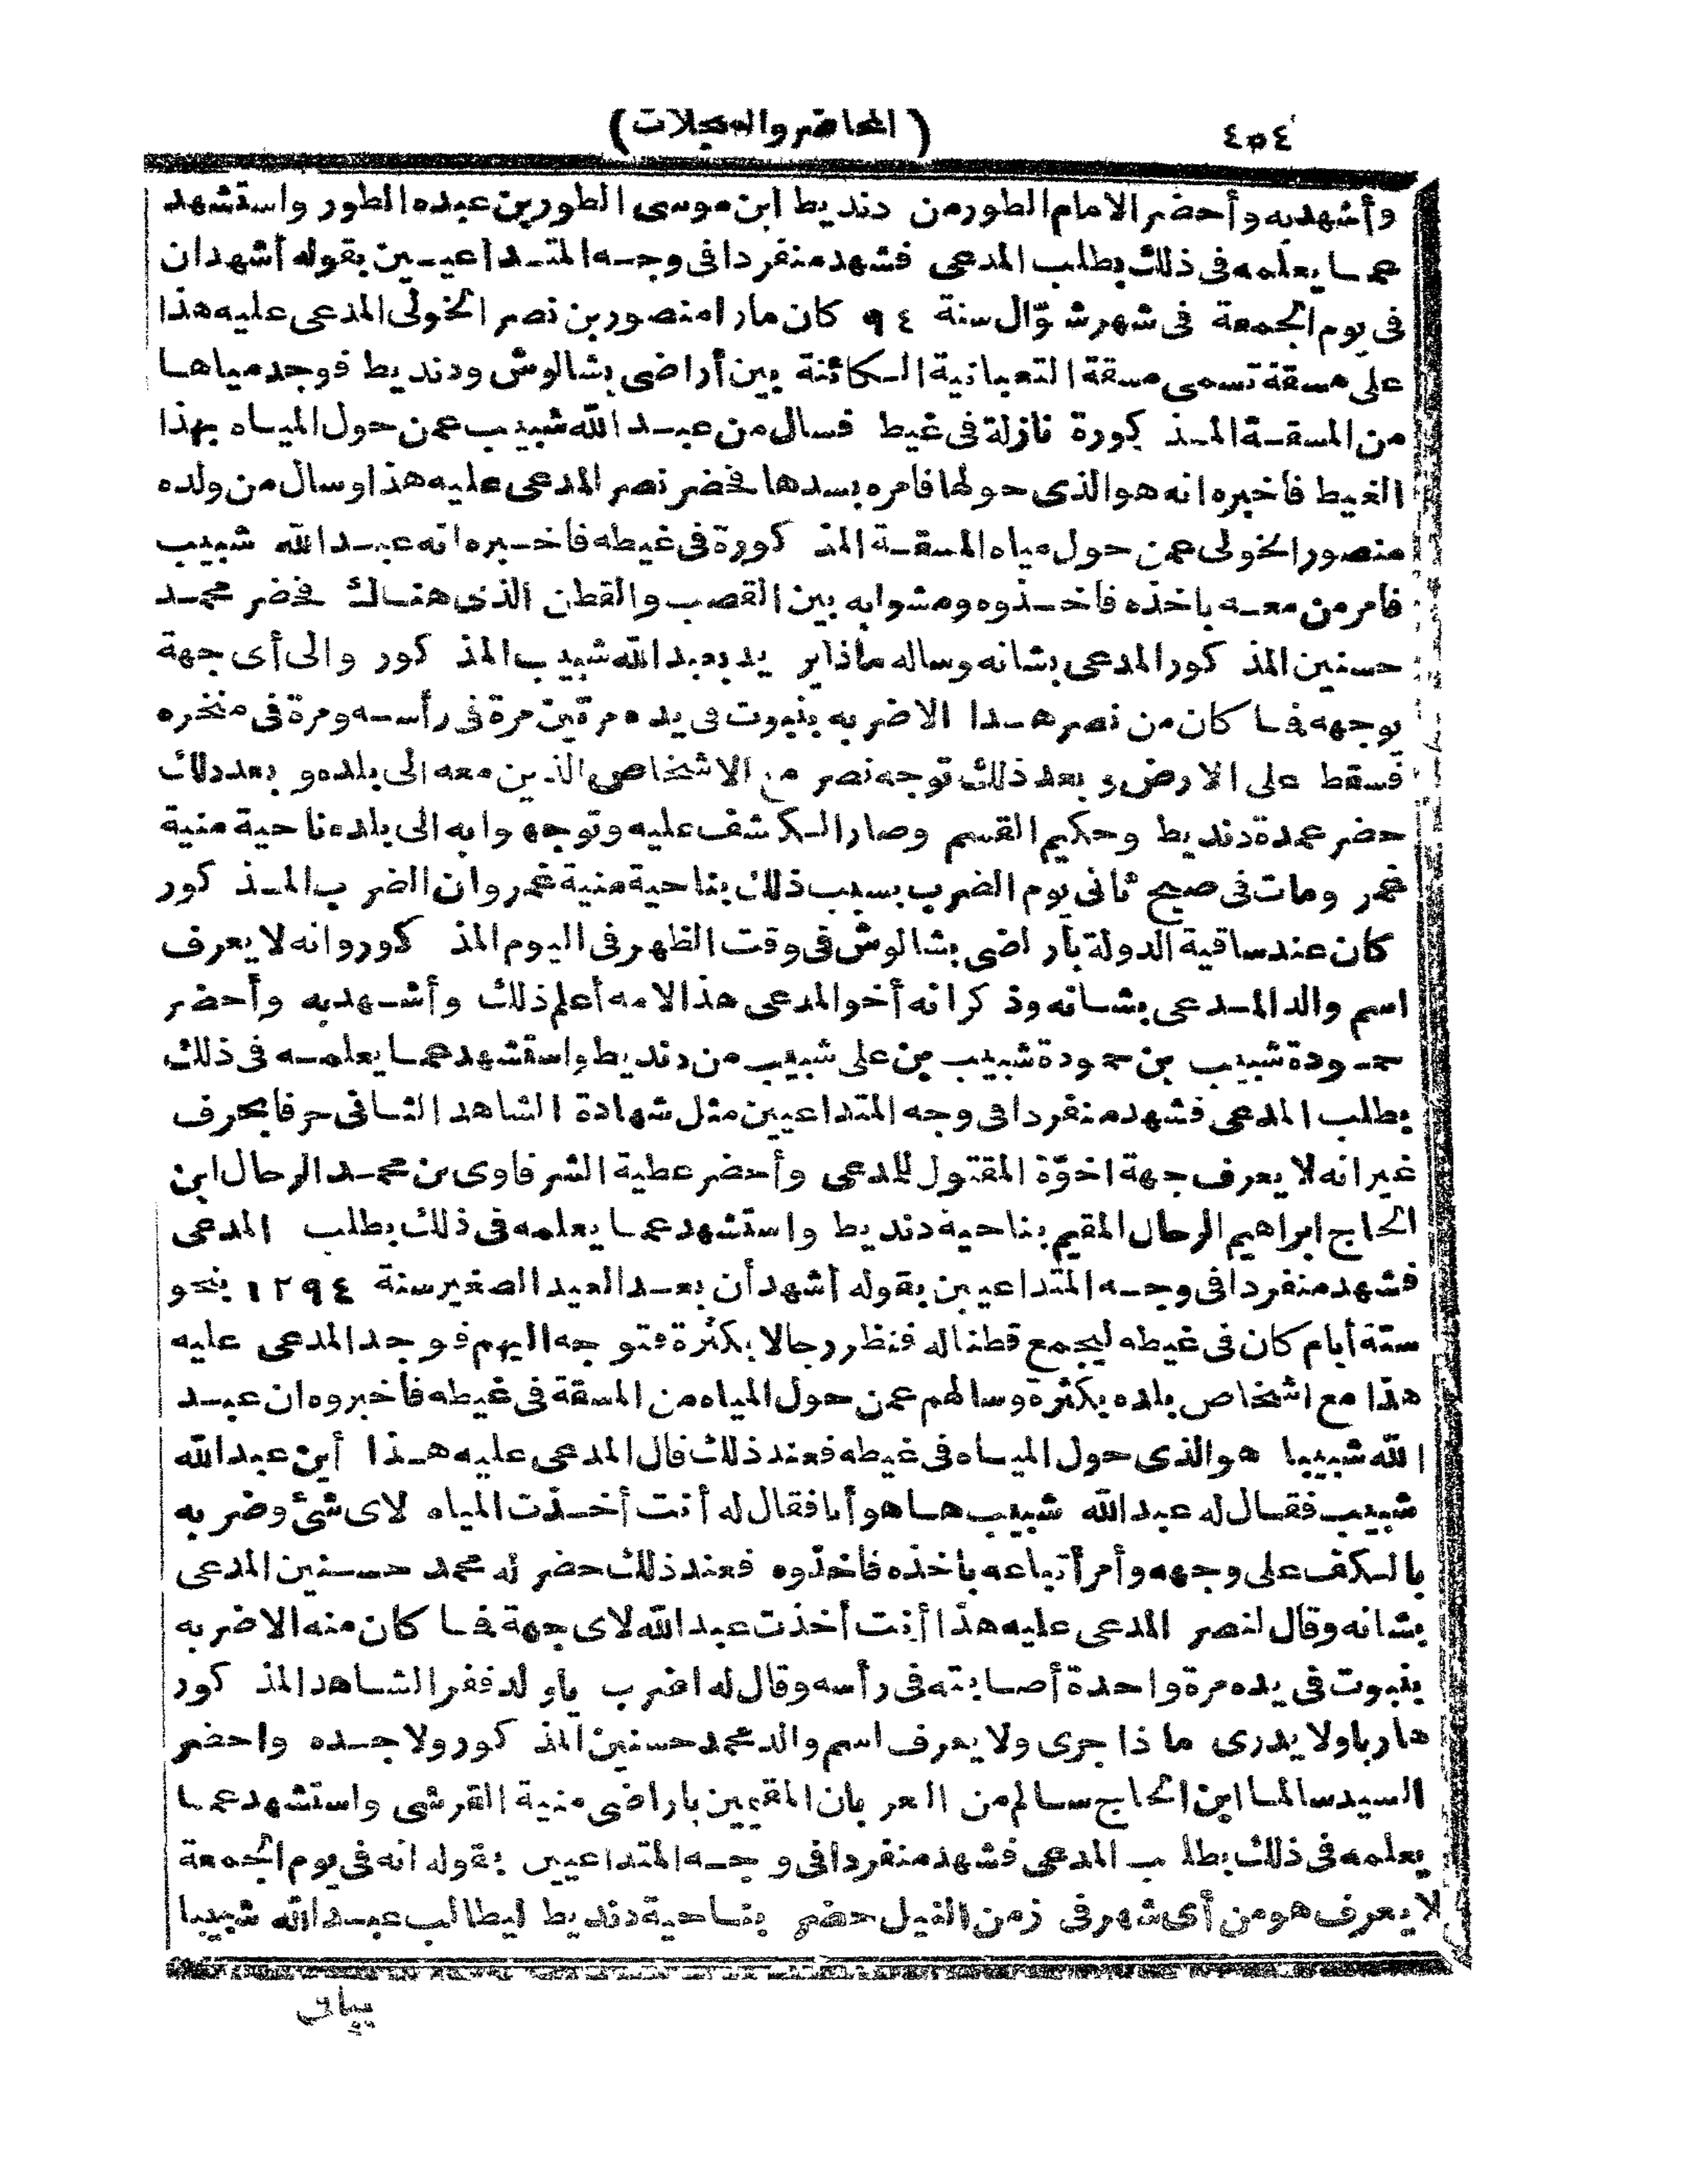 ٤٥٤
(المحاضر والسجلات)
وأشهد به وأحضر الامام الطور من دنديط ابن موسى الطور بن عبده الطور واستشهد
عما يعلمه فى ذلك بطلب المدعى فشهد منفردا فى وجه المتداعيين بقوله أشهد ان
فى يوم الجمعة فى شهر شوّال سنة ٩٤ كان مارا منصور بن نصر الخولى المدعى عليه هذا
على مسقة تسمى مسقة التعبانية الكائنة بين أراضى بشالوش ودنديط فوجد مياها
من المسقة المذكورة نازلة فى غيط فسال من عبد الله شبيب عمن حول المياه بهذا
الغيط فأخبره انه هو الذى حولها فامره بسدها فحضر نصر المدعى عليه هذا وسال من ولده
منصور الخولى عمن حول مياه المسقة المذكورة فى غيطه فأخبره انه عبد الله شبيب
فامر من معه باخذه فاخذوه ومشوا به بين القصب والقطن الذى هناك فحضر محمد
حسنين المذكور المدعى بشانه وساله ماذا يريد بعبد الله شبيب المذكور والى أى جهة
يوجهه فما كان من نصر هذا الا ضربه بنبوت فى يده مرتين مرة فى رأسه ومرة فى منخره
فسقط على الارض وبعد ذلك توجه نصر مع الاشخاص الذين معه الى بلده وبعد ذلك
حضر عمدة دنديط وحكيم القسم وصار الكشف عليه وتوجهوا به الى بلده ناحية منية
غمر ومات فى صبح ثانى يوم الضرب بسبب ذلك بناحية منية غمر وان الضرب المذكور
كان عند ساقية الدولة بأراضى بشالوش فى وقت الظهر فى اليوم المذكور وانه لا يعرف
اسم والد المدعى بشانه وذكر انه أخو المدعى هذا لامه أعلم ذلك وأشهد به وأحضر
حمودة شبيب بن حمودة شبيب بن على شبيب من دنديط واستشهد عما يعلمه فى ذلك
بطلب المدعى فشهد منفردا فى وجه المتداعيين مثل شهادة الشاهد الثانى حرفا بحرف
غير انه لا يعرف جهة اخوّة المقتول للمدعى وأحضر عطية الشرفاوى بن محمد الرحال ابن
الحاج ابراهيم الرحال المقيم بناحية دنديط واستشهد عما يعلمه فى ذلك بطلب المدعى
فشهد منفردا فى وجه المتداعيين بقوله أشهد أن بعد العيد الصغير سنة ١٢٩٤ بنحو
ستة أيام كان فى غيطه ليجمع قطنا له فنظر رجالا بكثرة فتوجه اليهم فوجد المدعى عليه
هذا مع اشخاص بلده بكثرة وسالهم عمن حول المياه من المسقة فى غيطه فأخبروه ان عبد
الله شبيبا هو الذى حول المياه فى غيطه فعند ذلك قال المدعى عليه هذا أين عبد الله
شبيب فقال له عبد الله شبيب ها هو أنا فقال له أنت أخذت المياه لاى شئ وضربه
بالكف على وجهه وأمر أتباعه باخذه فاخذوه فعند ذلك حضر له محمد حسنين المدعى
بشانه وقال لنصر المدعى عليه هذا أنت أخذت عبد الله لاى جهة فما كان منه الا ضربه
بنبوت فى يده مرة واحدة أصابته فى رأسه وقال له اضرب ياولد ففر الشاهد المذكور
هاربا ولا يدرى ماذا جرى ولا يعرف اسم والد محمد حسنين المذكور ولا جده واحضر
السيد سالما ابن الحاج سالم من العربان المقيمين باراضى منية القرشى واستشهد عما
يعلمه فى ذلك بطلب المدعى فشهد منفردا فى وجه المتداعيين بقوله انه فى يوم الجمعة
لا يعرف هو من أى شهر فى زمن النيل حضر بناحية دنديط ليطالب عبد الله شبيبا